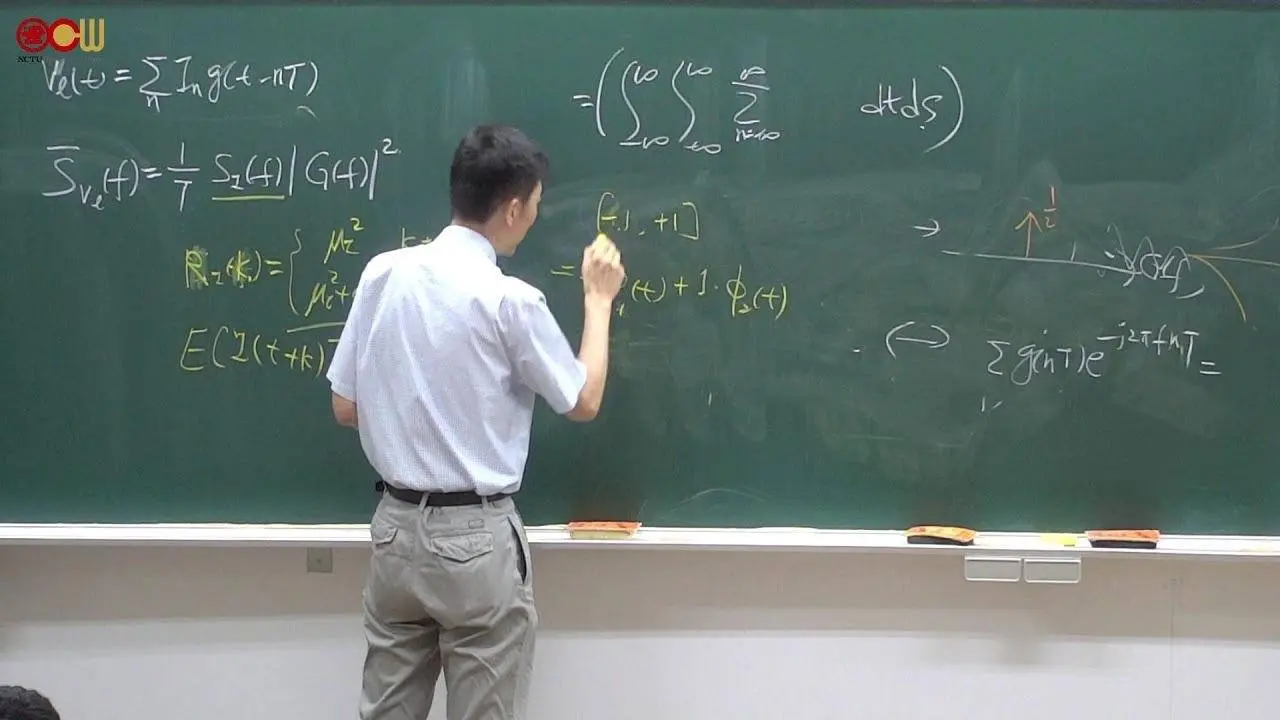 OCW
NCTU
V_ℓ(t) = Σ_n I_n g(t-nT)
S̄_{v_ℓ}(f) = 1/T S_I(f) |G(f)|²
R_I(k) = { μ_I²
μ_I² +
E(I(t+k)
= (∫_{-∞}^{∞} ∫_{-∞}^{∞} Σ_{n=-∞}^{∞} dtds)
[-1, +1]
= (t) + 1·ϕ₂(t)
→ 1/2
↔ Σ g(nT)e^{-j2πfnT} =